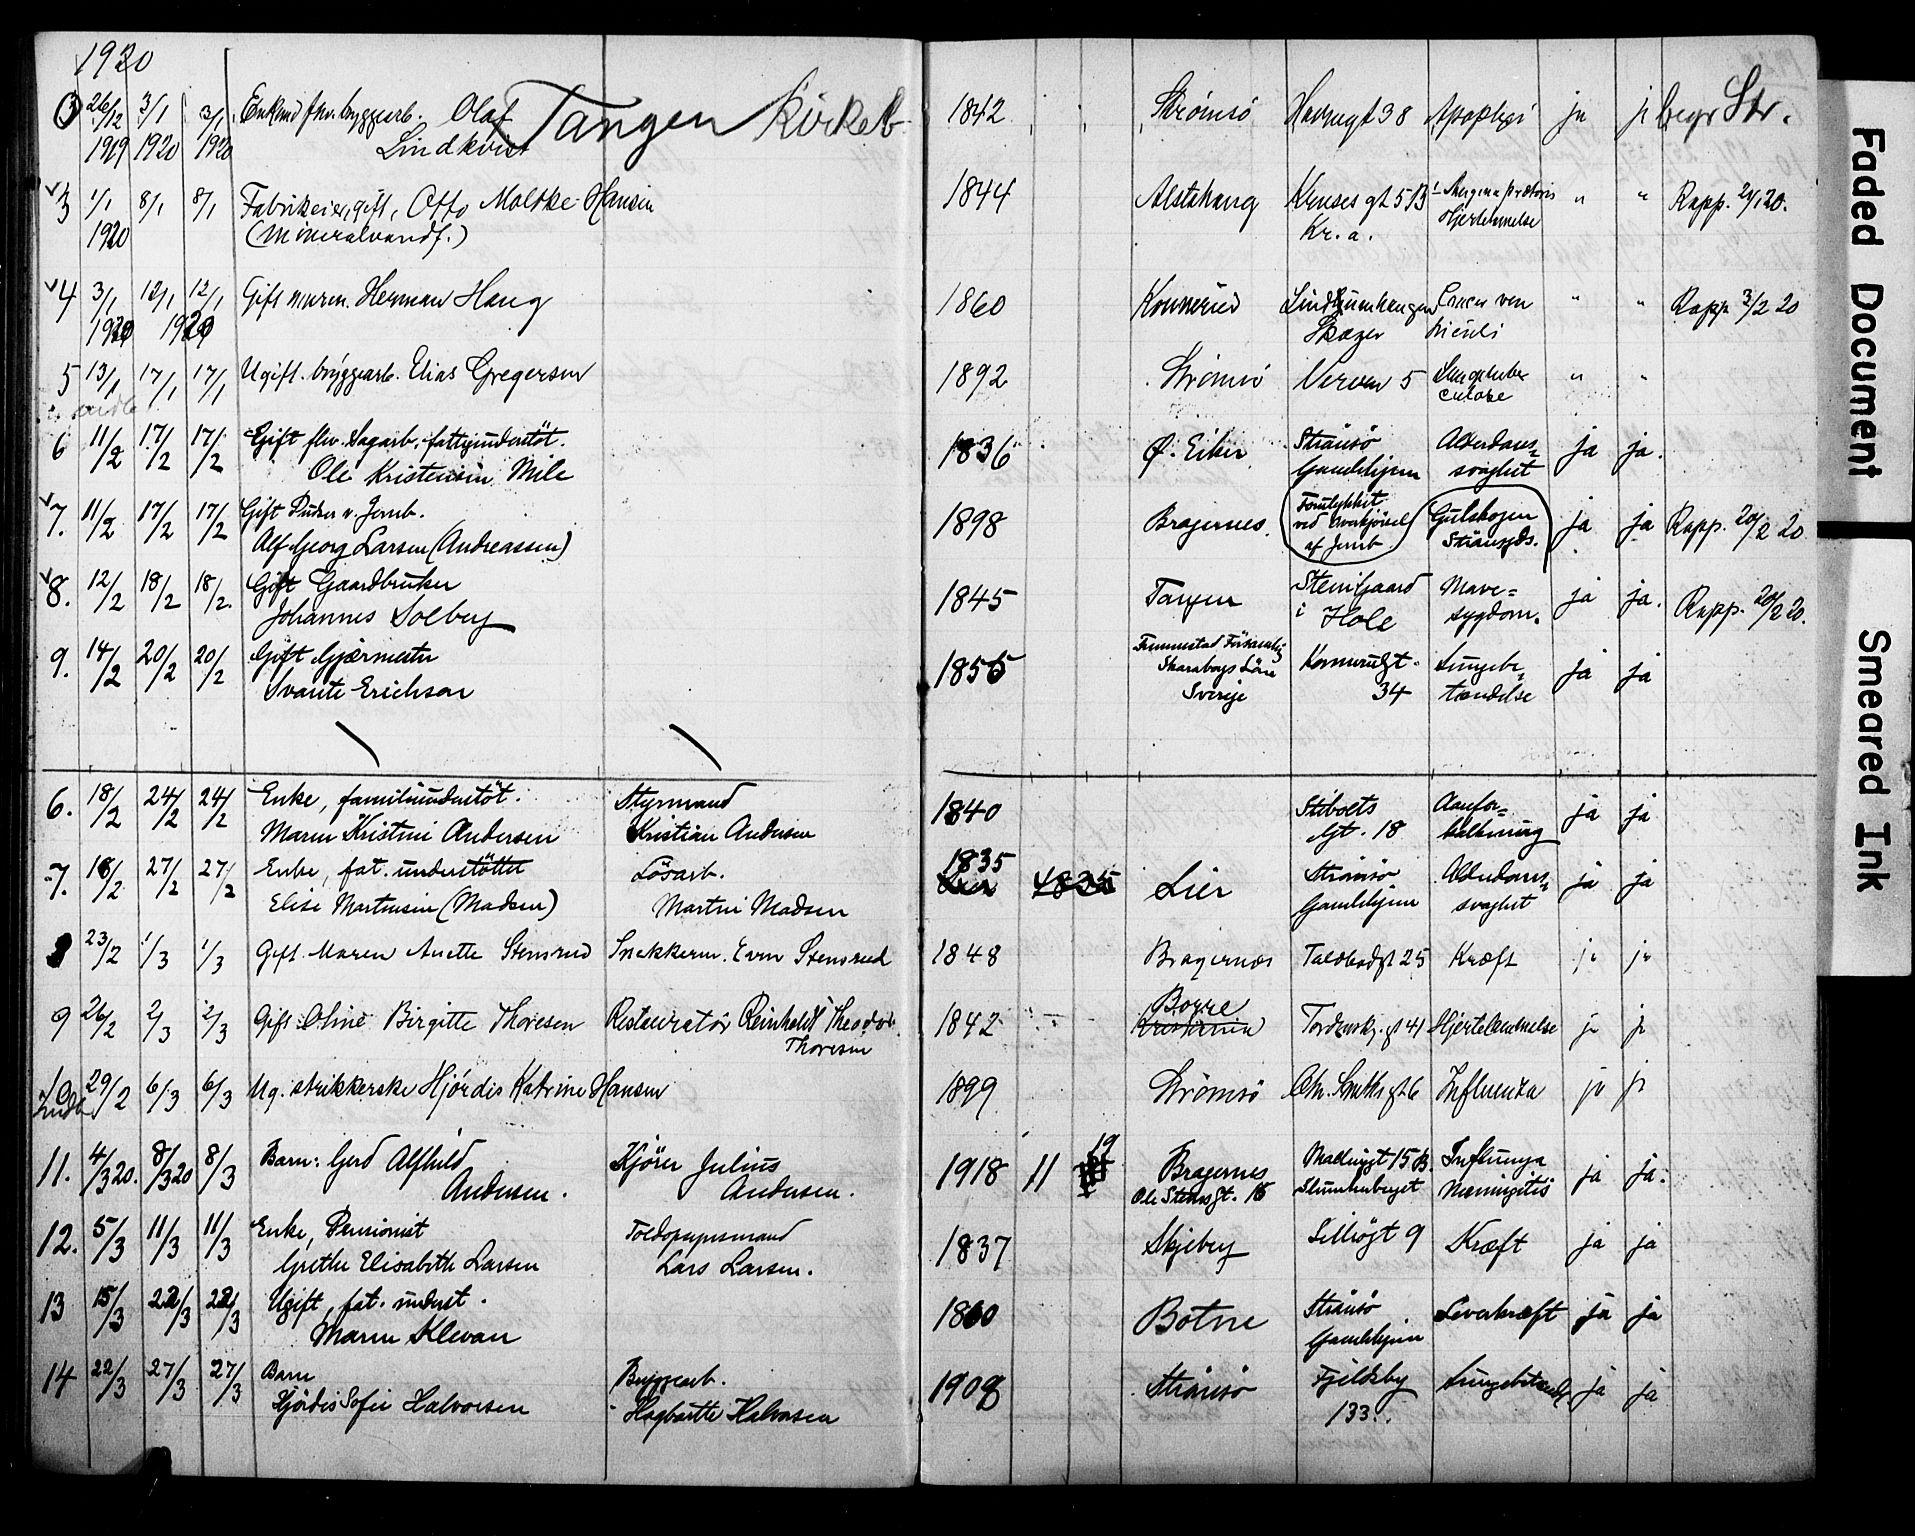 1920
3 26/12 3/1 3/1 Enkemd fhv. bryggearb. Olaf Tangen Kirkeb 1842 Strømsö Havnegt 38 Apoplexi ja ja begr Str.
1919 1920 1920 Lindkvist
3 1/1 8/1 8/1 Fabrikeier, gift, Otto Moltke Hansen 1844 Alstahaug Kruses gt 5B " " Rapp. 20.
1920 (Mineralvandf.) Kr. a. Hjertelammelse
4 3/1 12/1 12/1 Gift murm. Herman Haug 1860 Konnerud Rapp 3/2 20
1920 1920 Skoger
5 13/1 17/1 17/1 Ugift. bryggearb. Elias Gregersen 1892 Strømsö Nerven 5 " "
6 11/2 17/2 17/2 Gift fhv. Sagarb. fattigunderstöt. 1836 Ø. Eiker Strömsö Alderdoms= ja ja.
Ole Kristensen Mile Gamlehjem svaghet
7. 11/2 17/2 17/2 Gift Pudser v. Jernb. 1898 Bragernes. Forulykket Gulskogen ja ja Rapp. 20/2 20
Alf Georg Larsen (Andreassen) ved overkjörsel af Jernb. Strömsgds.
8. 12/2 18/2 18/2. Gift Gaardbruker 1845 Tangen Stensgaard Mave= ja ja. Rapp. 20/2 20.
Johannes Solberg i Hole sygdom.
9. 14/2 20/2 20/2 Gift Gjærmester 1855 Konnerudgt. Lungebe= ja ja
Svante Erichson Skaraborgs Län Sverige 34 tændelse
6. 18/2 24/2 24/2 Enke, familieunderstöt. Styrmand 1840 Stibolts Aarefor= ja ja
Maren Kristine Andersen Kristian Andersen Gt. 18 kalkning
7. 18/2 27/2 27/2 Enke, fat. understöttet Lösarb. 1835 1835 Lier Strömsö Alderdoms= ja ja
Elise Martinsen (Madsen) Martin Madsen Gamlehjem svaghet
8 23/2 1/3 1/3 Gift Maren Anette Stensrud Snekkerm. Even Stensrud 1848 Bragernæs Toldbodgt 25 Kræft ja ja
9 26/2 2/3 2/3 Gift Oline Birgitte Thoresen Restauratör Reinholdt Theodor 1842 Borre Tordenskj. gt 41 Hjertelammelse ja ja
Thoresen Kristiania
10 29/2 6/3 6/3 Ug. strikkerske Hjördis Katrine Hansen 1899 Strømsö Chr. Smiths gt 6 Influenza ja ja
11. 4/3 20. 8/3 20 8/3 Barn: Gerd Alfhild Kjörer Julius 1918 11 19 Bragernes Influenza ja ja.
Andersen. Andersen. Ole Steens Gt. 15 Meningitis
12. 5/3 11/3 11/3 Enke, Pensionist Toldopsynsmand 1837 Skjeberg 9 Kræft ja ja
Grethe Elisabeth Larsen Lars Larsen.
13 15/3 22/3 22/3 Ugift, fat. underst. 1860 Botne Strömsö Leverkræft ja ja
Maren Klevan Gamlehjem
14 22/3 27/3 27/3 Barn Bryggearb. 1908 Strömsö Fjeldsby ja ja
Hjördis Sofie Halvorsen Hagbarth Halvorsen 133.
Faded Document
Smeared Ink